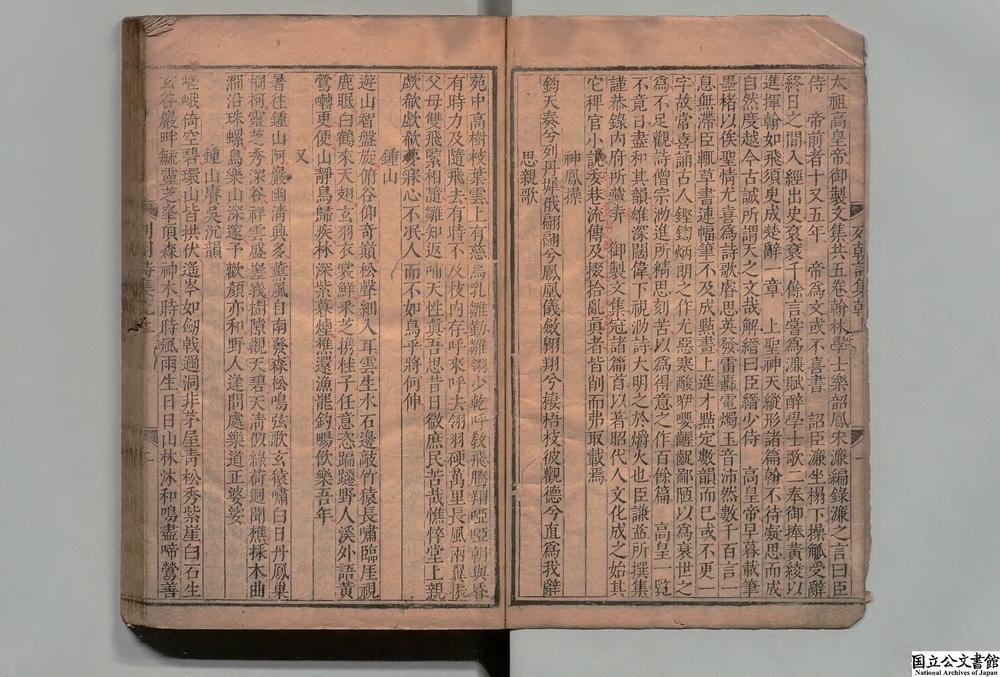 太祖高皇帝御製文集共五卷翰林學士樂韶鳳宋濂編錄濂之言曰臣
侍　帝前者十又五年　帝為文或不喜書　詔臣濂坐榻下操觚受辭
終日之間入經出史袞袞千餘言嘗為濂賦醉學士歌二奉御捧黃綾以
進揮翰如飛須臾成楚辭一章　上聖神天縱形諸篇翰不待凝思而成
自然度越今古誠所謂天之文哉解縉曰臣縉少侍　高皇帝早暮載筆
墨楮以俟聖情尤喜為詩歌睿思英發雷轟電燭玉音沛然數千百言一
息無滯臣輒草書連幅筆不及成點畫上進才點定數韻而已或不更一
字故常喜誦古人鏗鍧炳朗之作尤惡寒酸咿嚘齷齪鄙陋以為衰世之
為不足觀詩僧宗泐進所精思刻苦以為得意之作百餘篇　高皇一覽
不竟日盡和其韻雄深闊偉下視泐詩大明之於爝火也臣謙益所撰集
謹恭錄內府所藏弆　御製文集冠諸篇首以著昭代人文化成之始其
它稗官小說委巷流傳及掇拾亂真者皆削而弗取載焉
神鳳操
鈞天奏兮列丹墀俄翩翩兮鳳凰儀斂翱翔兮棲梧枝彼觀德兮直為我辭
思親歌
苑中高樹枝葉雲上有慈烏乳雛勤雛翎少乾呼教飛騰翔啞啞朝與昏
有時力及隨飛去有時不及枝內存呼來呼去翎羽硬萬里長風兩翼振
父母雙飛緊相隨雛知返哺天性真吾思昔日微庶民苦哉憔悴堂上親
歔欷歔欷夢寐心不泯人而不如鳥乎將何伸
鍾山
遊山智盤旋俯谷仰奇巔松聲細入耳雲生水石邊敲竹猿長嘯臨厓視
鹿眠白鶴來天翅玄羽衣裳鮮采芝攜桂子任意恣蹁躚野人溪外語黃
鶯囀更便山靜鳥歸疾林深紫暮煙樵還漁罷釣暢飲樂吾年
又
暑往鍾山阿巖幽清興多薰風自南發森松鳴弦歌玄猿嘯白日丹鳳巢
桐柯靈芝秀深谷祥雲盛嵳峩樹隙觀天碧天清似綠荷迴聞樵採木曲
澗沿珠螺鳥樂山深邃予歡顏亦和野人逢問處樂道正婆娑
鍾山賡吳沉韻
嵯峨倚空碧環山皆拱伏遙岑如劒戟邇洞非茅屋青松秀紫崖白石生
玄谷巖畔毓靈芝峯頂森神木時時風雨生日日山林沐和鳴盡啼鶯善
国立公文書館
National Archives of Japan